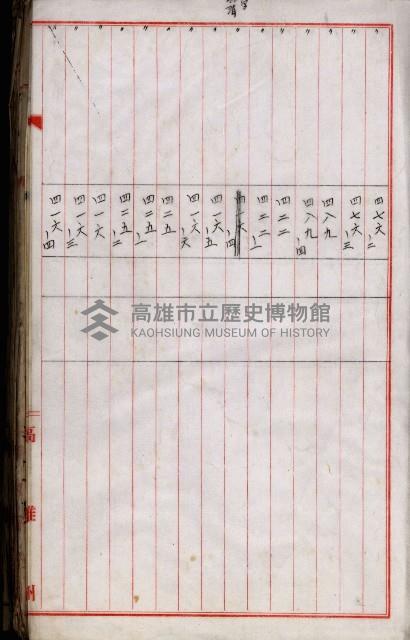 〃 四七六、二
〃 四七六、三
〃 四八九
〃 四八九、四
〃 四二二
〃 四二二、一
〃 四一六、四
〃 四一六、五
〃 四一六、六
〃 四二五
〃 四二五、一
〃 四二五、二
〃 四一六
〃 四一六、三
〃 四一六、四
高雄州
高雄市立歷史博物館
KAOHSIUNG MUSEUM OF HISTORY